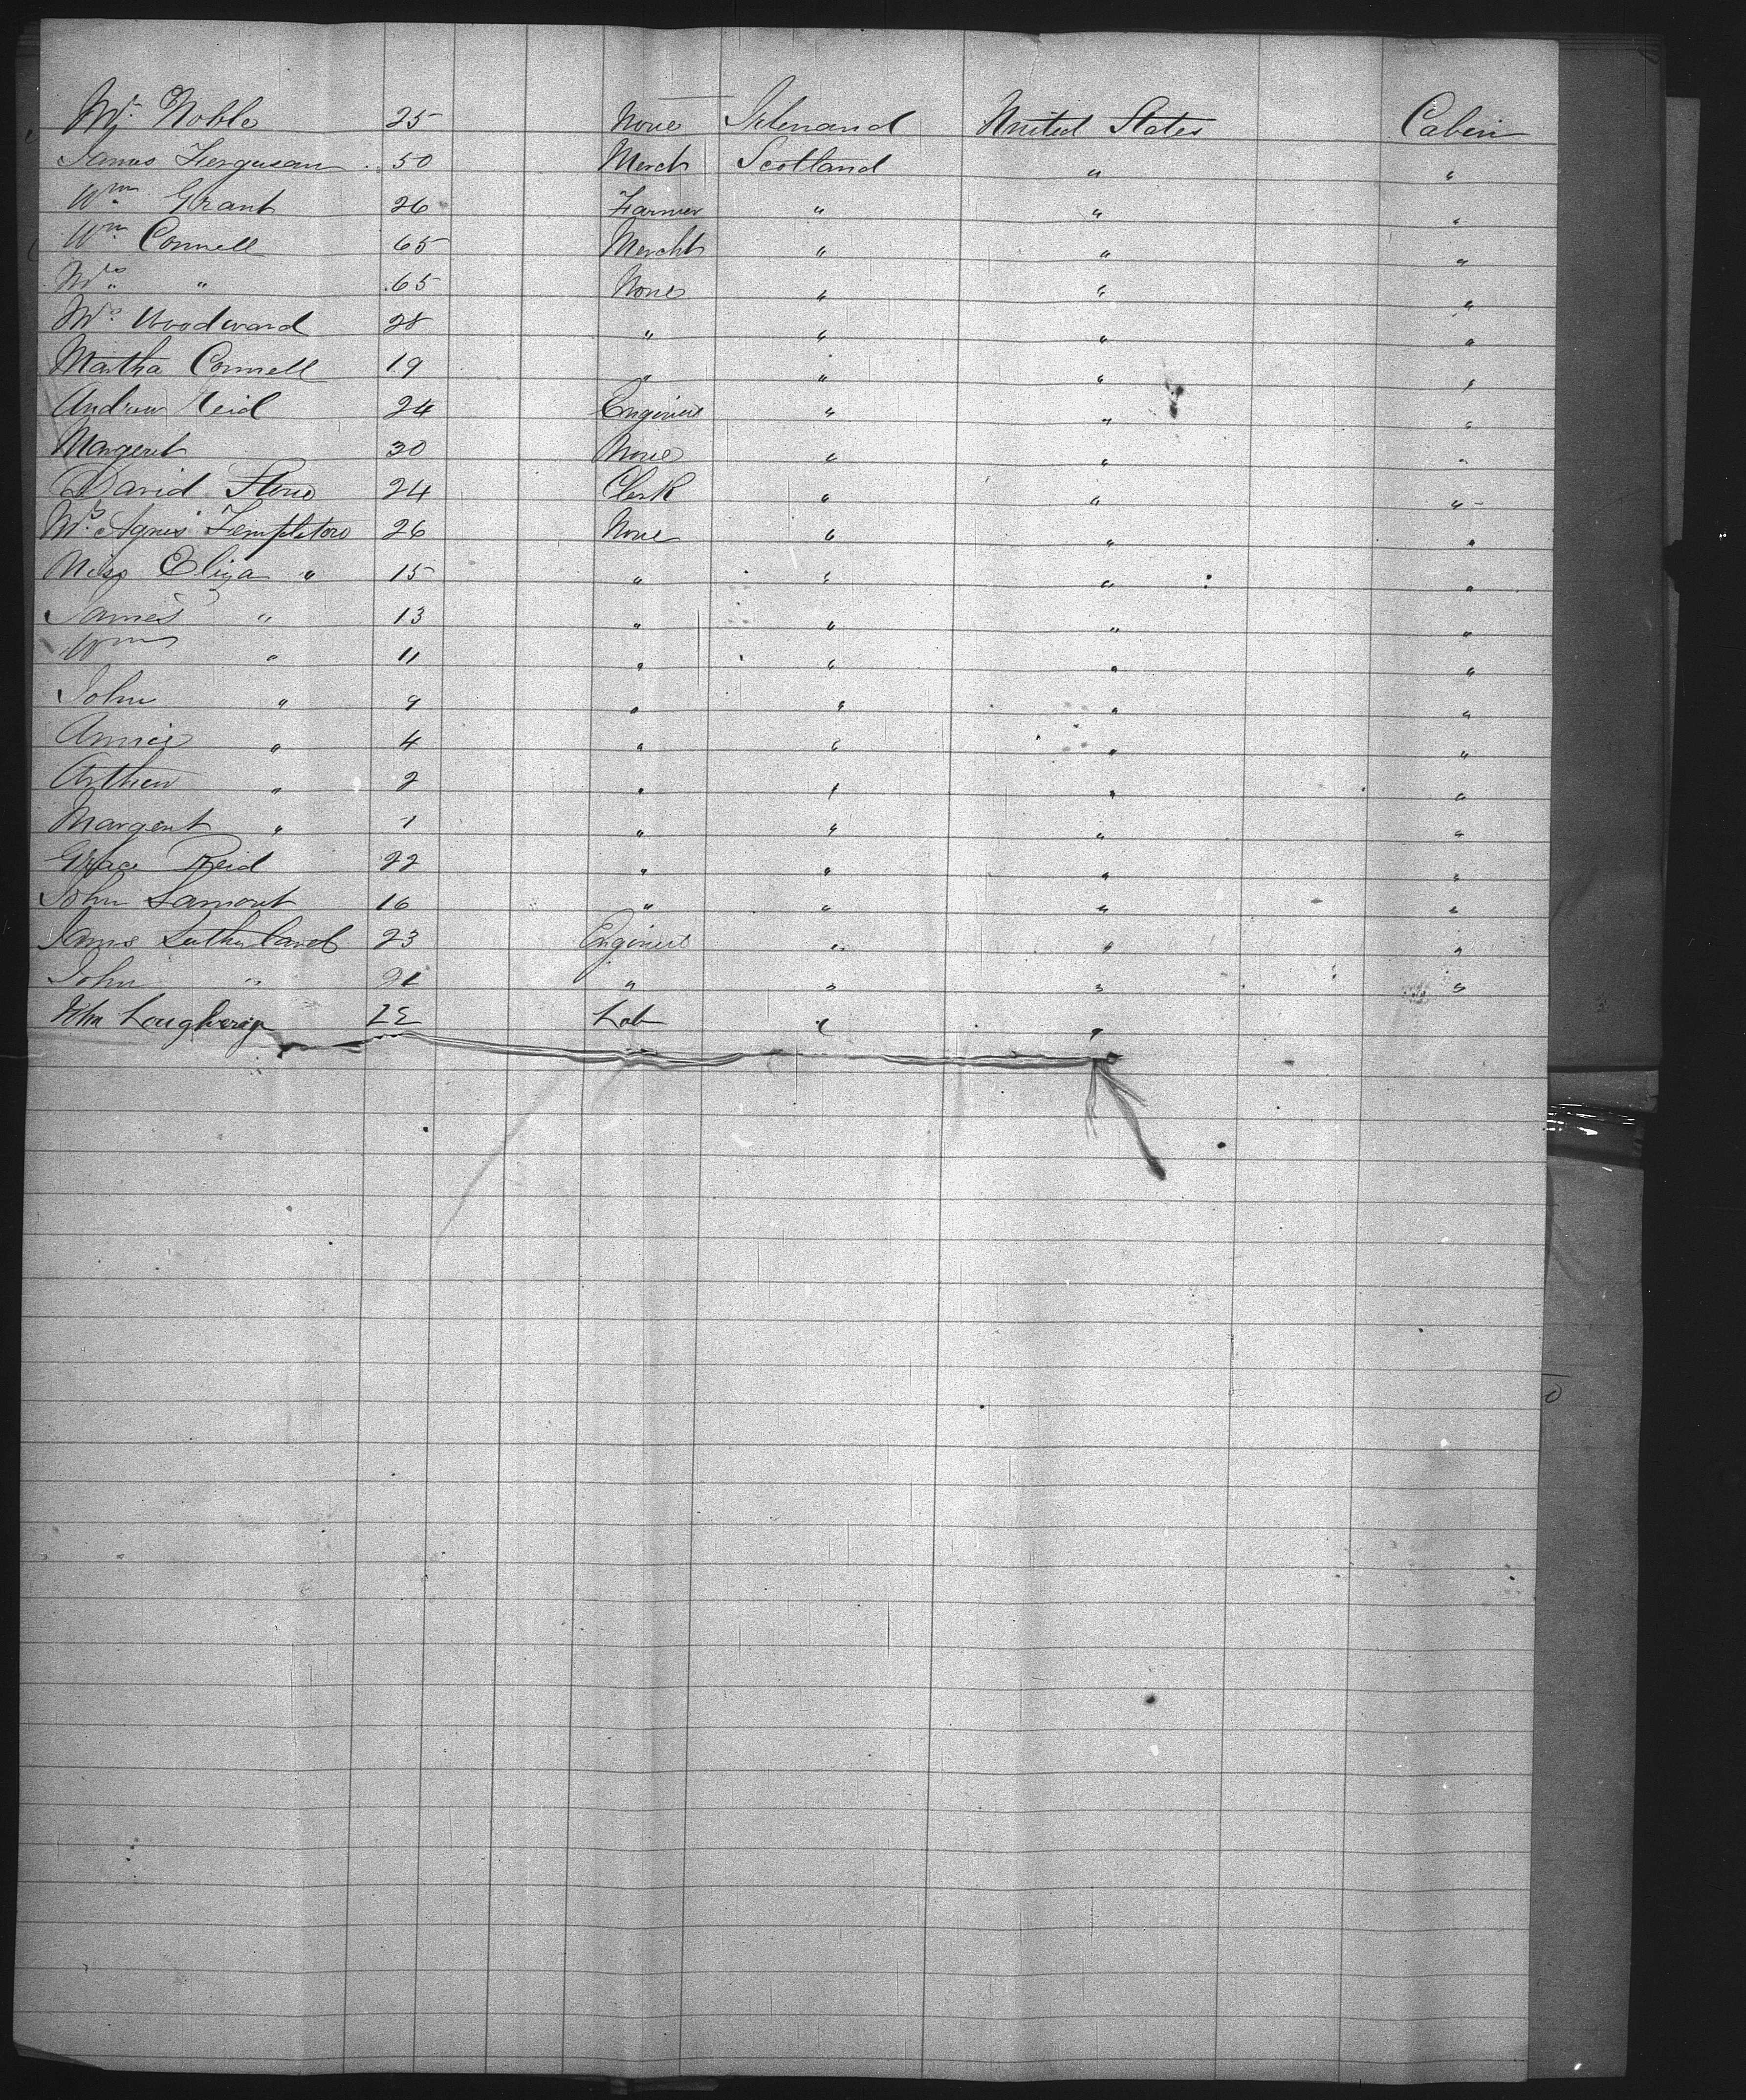 Mr. Noble 25 None Irlenand United States Cabin
James Ferguson 50 Merch Scotland " "
Wm. Grant 26 Farmer " " "
Wm. Connell 65 Mercht " " "
Mrs. " 65 None " " "
Mrs. Woodward 28 " " " "
Martha Connell 19 " " " "
Andrew Reid 24 Engineer " " "
Margeret 30 None " " "
David Stone 24 Clerk " " "
Mrs. Agnes Templeton 26 None " " "
Miss Eliza " 15 " " " "
James " 13 " " " "
Wm " 11 " " " "
John " 9 " " " "
Annie " 4 " " " "
Arthur " 2 " " " "
Margeret " 1 " " " "
Grace Reid 22 " " " "
John Lamont 16 " " " "
James Sutherland 23 Engineer " " "
John " 21 " " " "
John 25 Lab " "